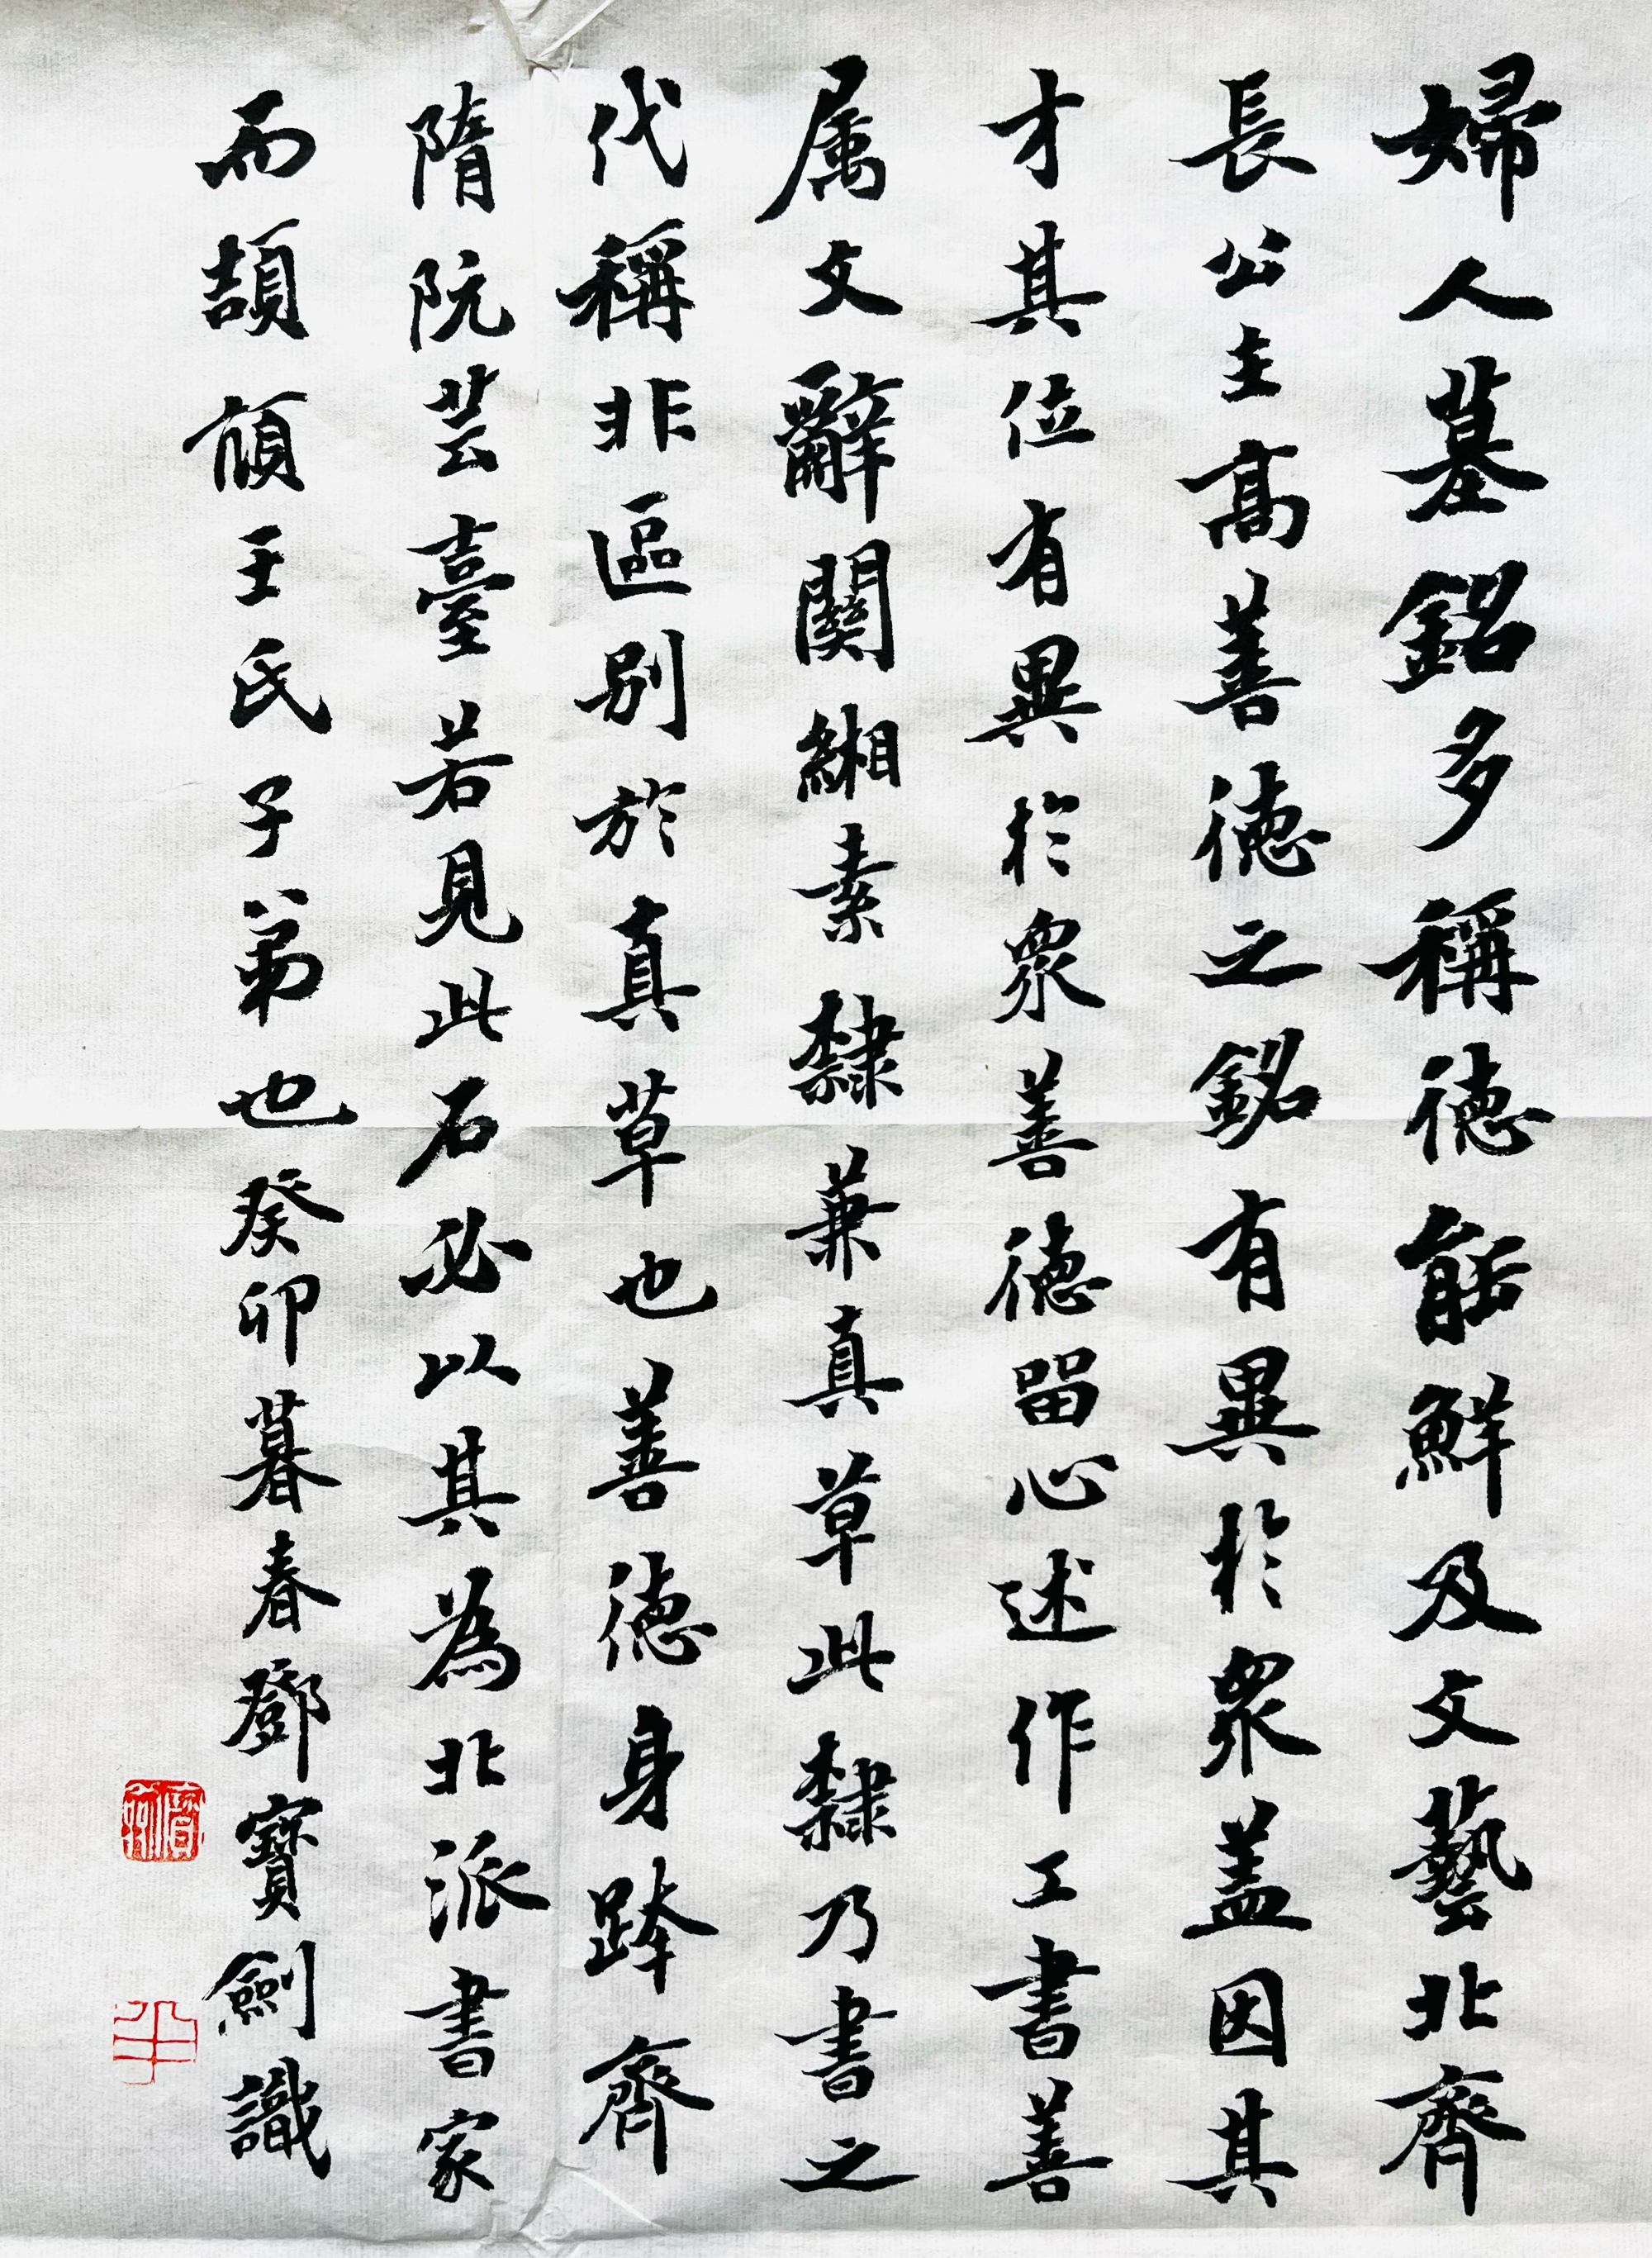 婦人墓銘多稱德能鮮及文藝北齊
長公主高善德之銘有異於眾蓋因其
才其位有異於眾善德留心述作工書善
属文辭關緗素隸兼真草此隸乃書之
代稱非區別於真草也善德身跨齊
隋阮芸臺若見此石必以其為北派書家
而頡頏王氏子弟也癸卯暮春鄧寶劍識